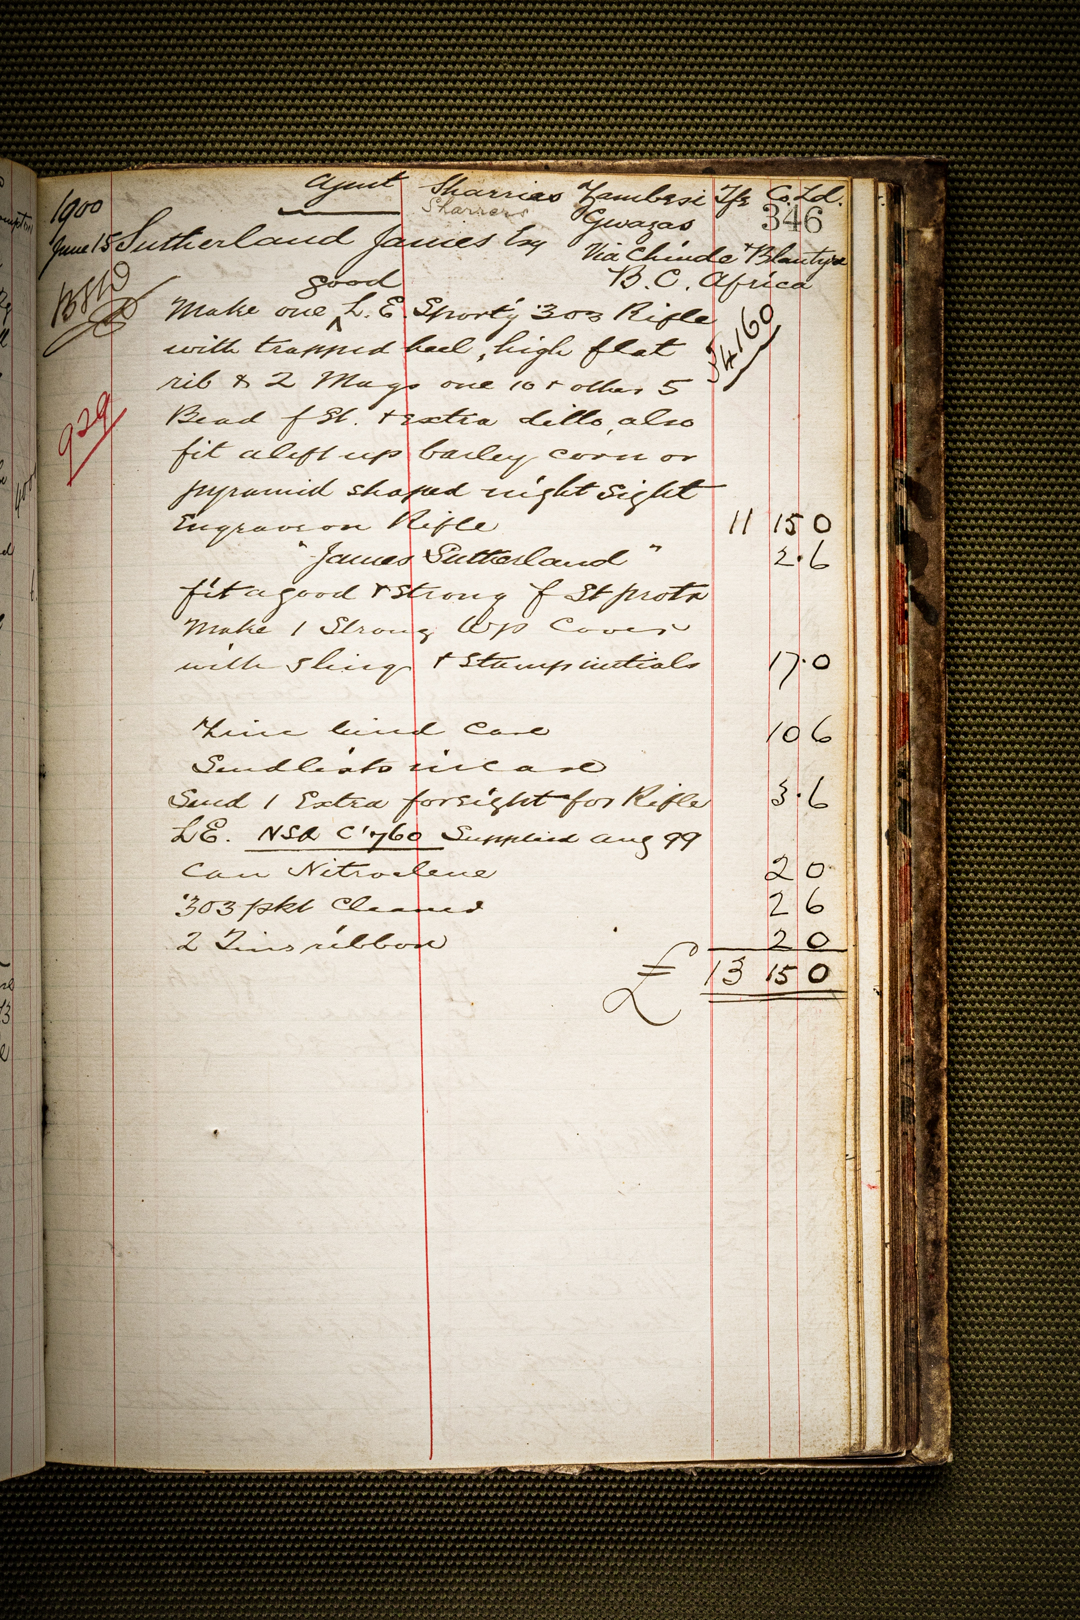 1900
Agent Sharries Zambesi Tfc Co. Ld.
Sharrers
346
Gwazas
June 15 Sutherland James Esq
Via Chinde & Blantyre
B. C. Africa
good
Make one L. E. Sport'g 303 Rifle
34160
with trapped heel, high flat
rib & 2 Mags one 10 & other 5
929
Bead f St. & extra ditto, also
fit a lift up barley corn or
pyramid shaped night sight
Engrave on Rifle 11 15 0
"James Sutherland" 2.6
fit a good & strong f St protr
Make 1 Strong WP Cover
with sling & stamp initials 17.0
Zinc lined Case 10 6
Send lists in case
Send 1 Extra foresight for Rifle 3.6
LE. NSR C'760 Supplied Aug 99
Can Nitroclene 2 0
303 pkt Cleaner 2 6
2 Tins ribbon 2 0
£ 13 15 0